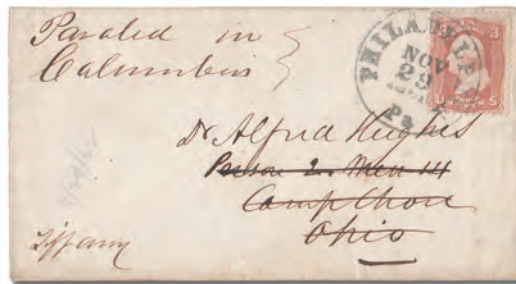 Paroled in
Columbus
PHILADELPHIA
NOV
29
Pa
3
U S
Dr Alfred Hughes
Prison 2. Mess 14
Camp Chase
Ohio
Tiffany